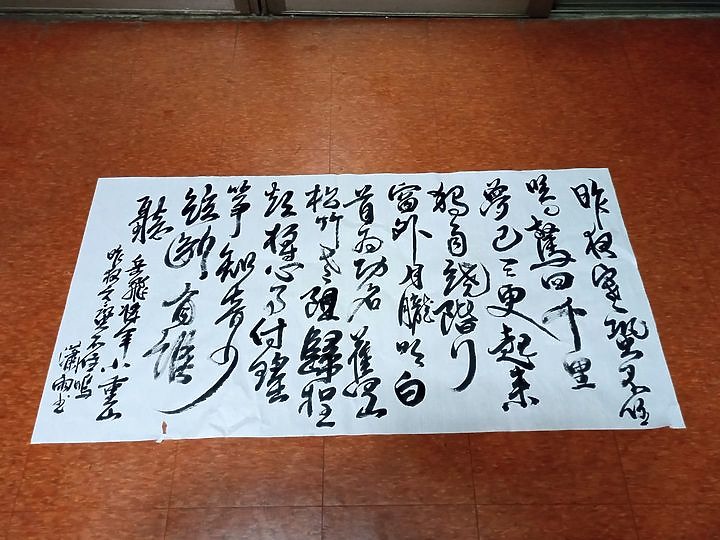 昨夜寒蛩不住
鳴驚回千里
夢已三更起來
獨自繞階行
窗外月朧明白
首為功名舊山
松竹老阻歸程
欲將心事付瑤
箏知音少
絃斷有誰
聽
岳飛將軍小重山
昨夜寒蛩不住鳴
瀟雨書